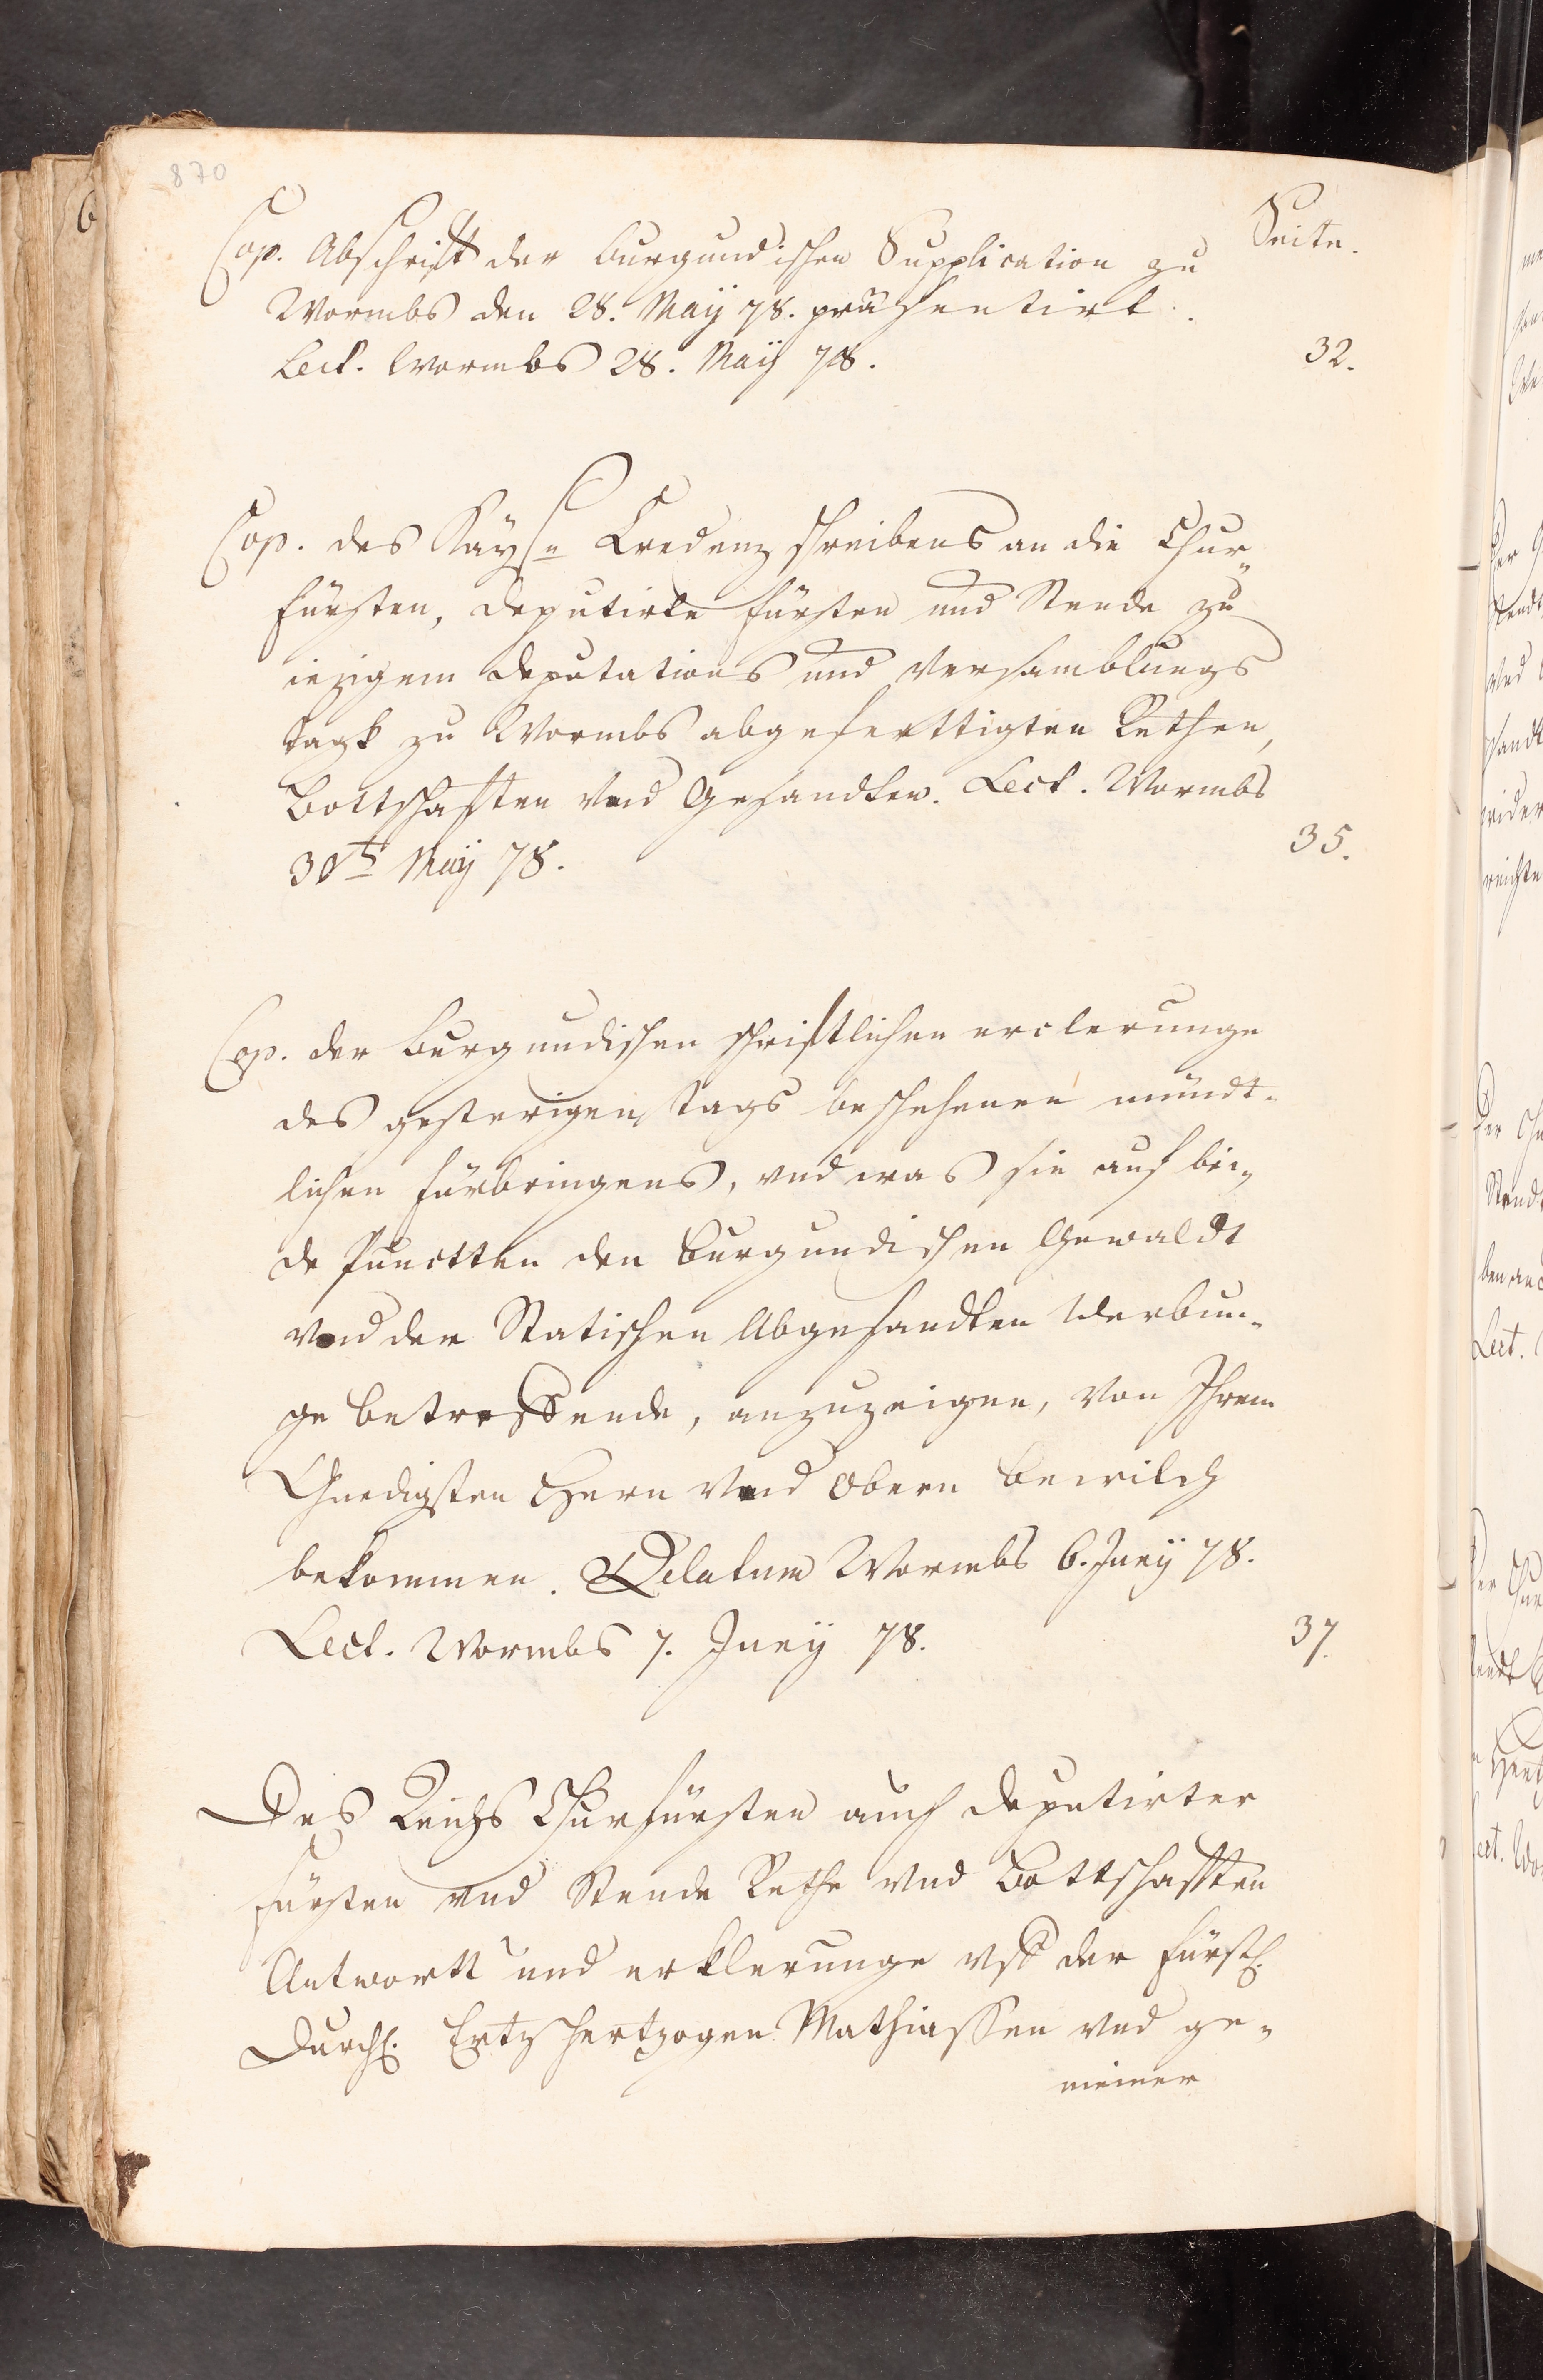 870
Seite.
Cop. Abschrifft der burgundischen Supplication zu
Wormbs den 28. Maÿ 78. præsentirt.
Lect. Wormbs 28. Maÿ 78. 32.
Cop. des Kaÿsn Credenz schreibens an die Chur„
fürsten, deputirte fürsten und Stende zu
iezigem deputations und versamblungs
tagk zu Wormbs abgeferttigten Rethen,
Bottschafften vnd Gesandten. Lect. Wormbs
30ts Maÿ 78. 35.
Cop. der burgundischen schrifftlichen erclerunge
des gesterigen tags beschehenen mündt-
lichen fürbringens, vnd was sie auf bei„
de Punctten den burgundischen Gewaldt
vnd der Statischen Abgesandten Werbun-
ge betreffende, anzuzeigen, von Ihrem
Gnedigsten Hern vnd Obern bewilch
bekommen. Delatum Wormbs 6. Junÿ 78.
Lect. Wormbs 7. Junÿ 78. 37.
Des Reichs Churfürsten auch deputirter
fürsten vnd Stende Rethe vnd Bottschafften
Antwortt und erklerunge vff der fürstl.
Durchl. Ertzhertzogen Mathiassen vnd ge„
meiner